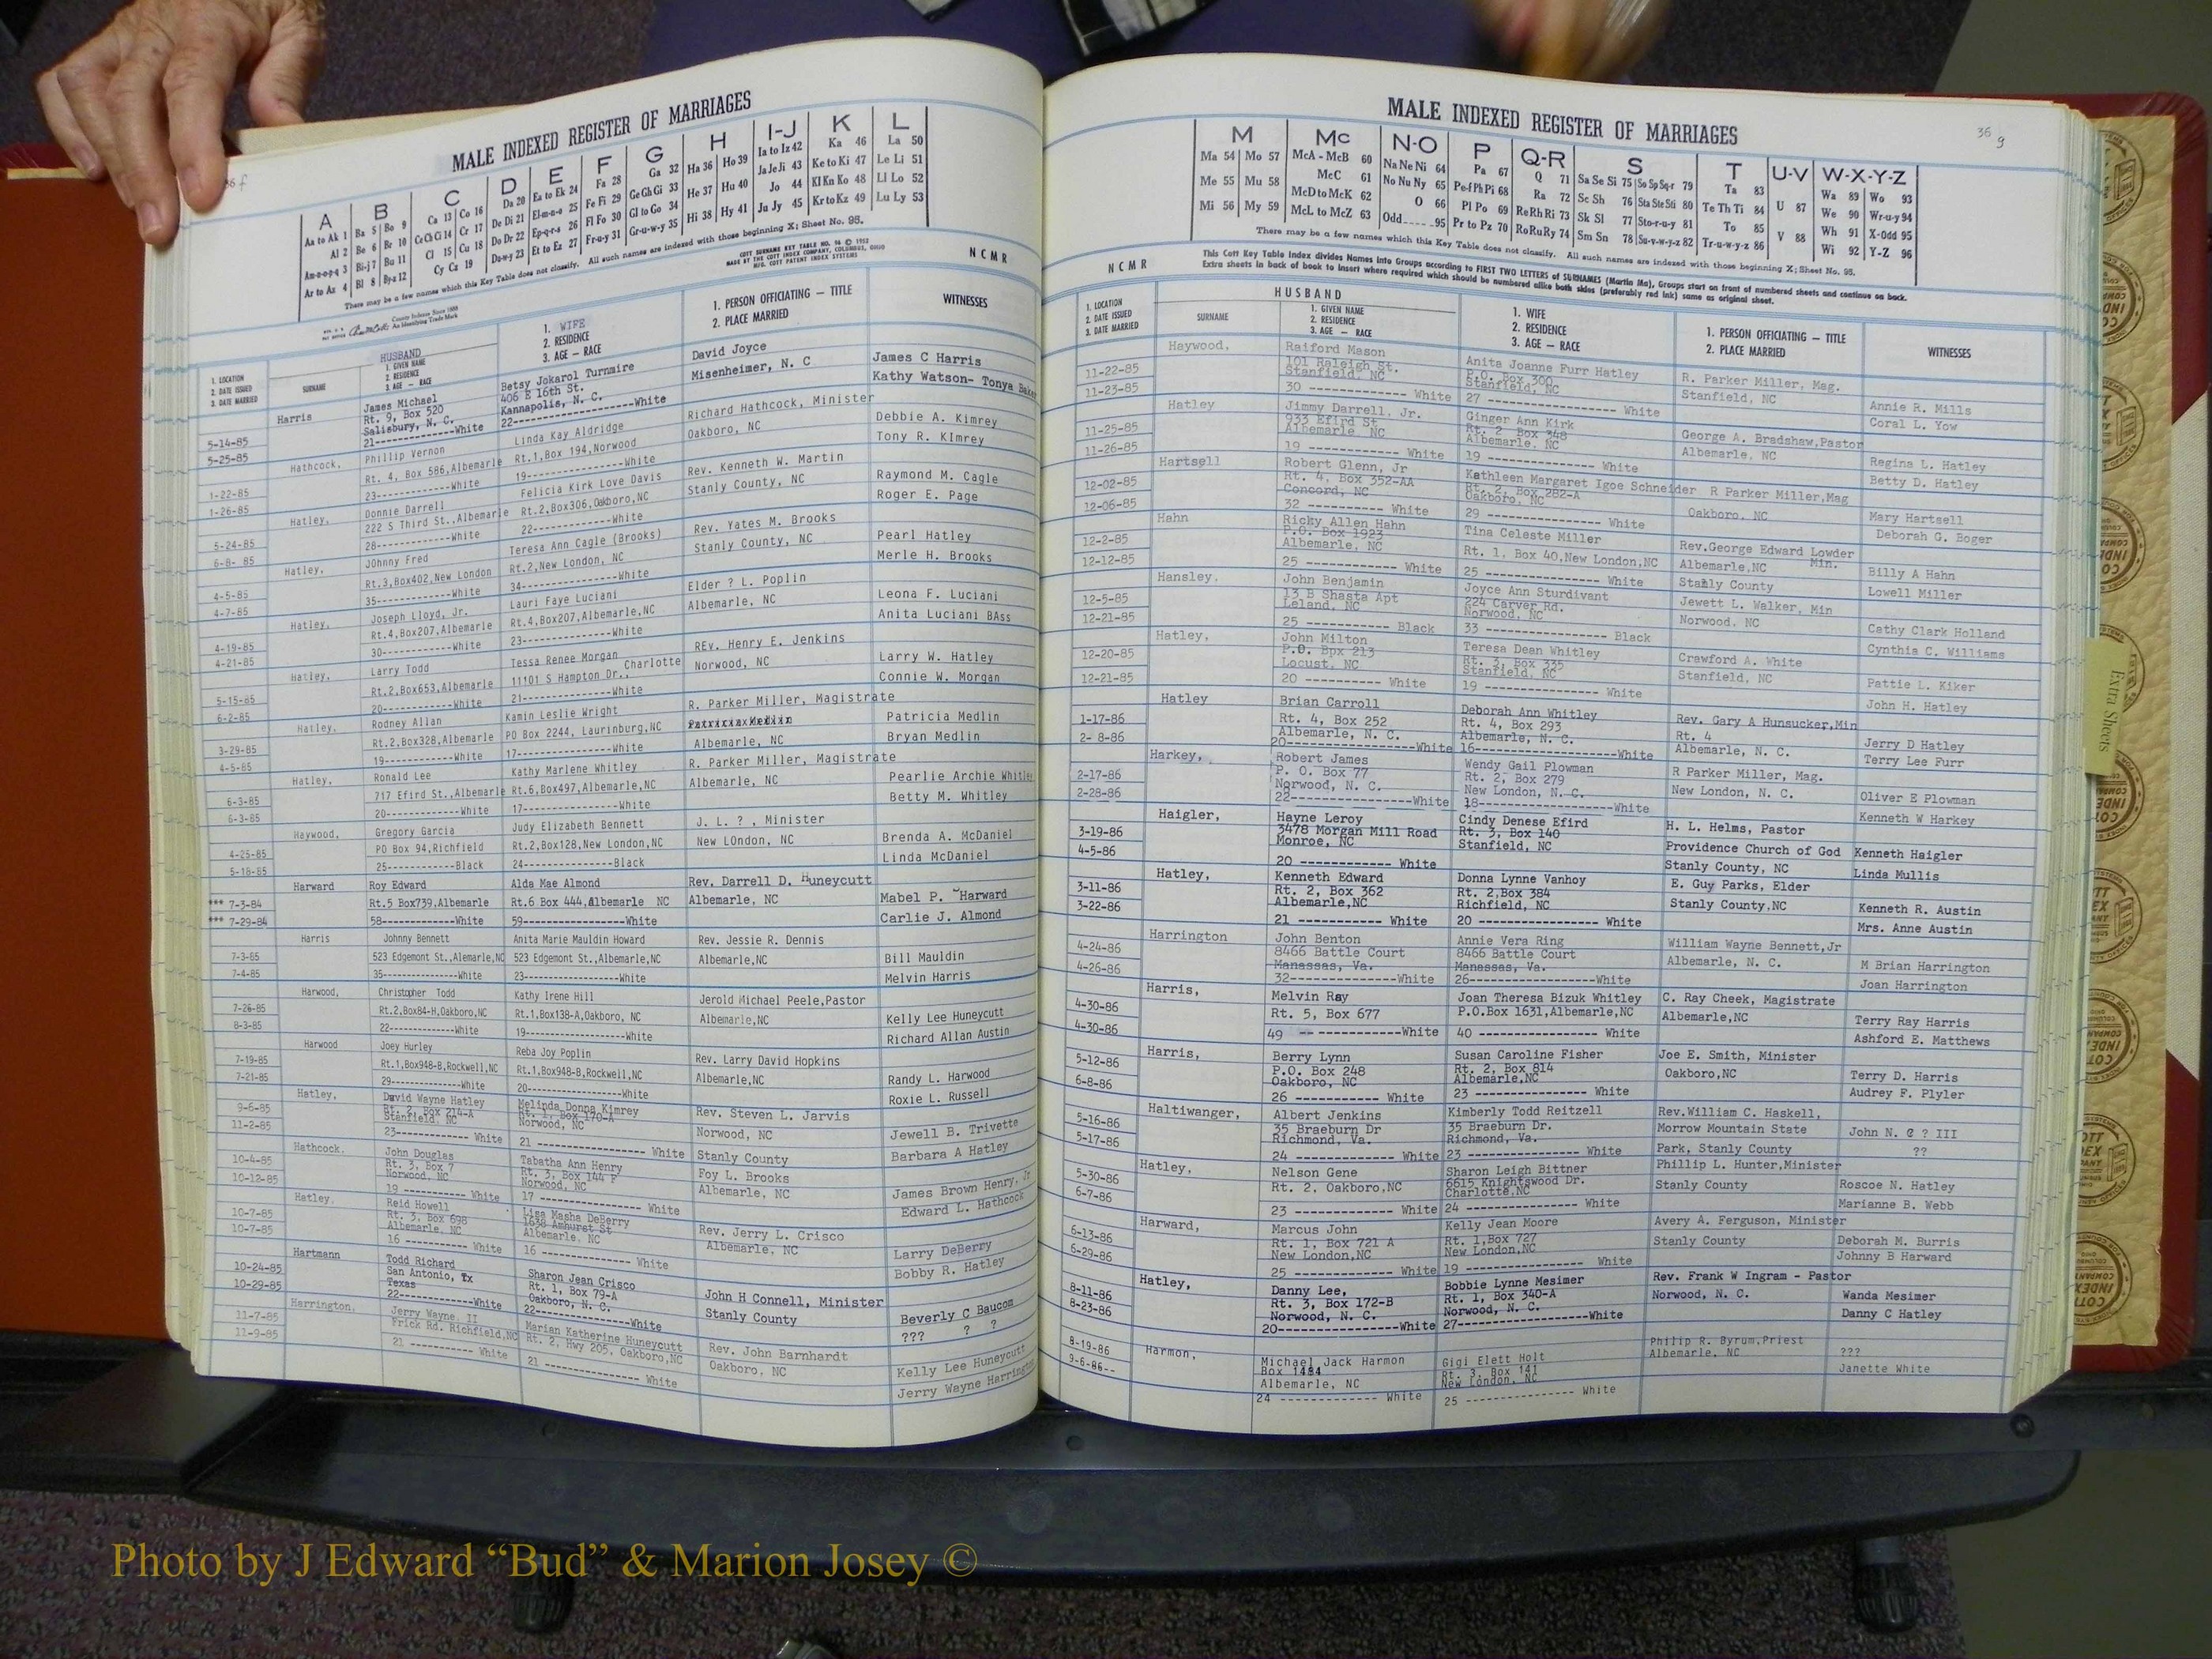 MALE INDEXED REGISTER OF MARRIAGES
A B C D E F G H I-J K L
Aa to Ak 1 Ba 5 Bo 9 Ca 13 Co 16 Da 20 Ea to Ek 24 Fa 28 Ga 32 Ha 36 Ho 39 Ia to Iz 42 Ka 46 La 50
Al 2 Be 6 Br 10 Ce Ch Ci 14 Cr 17 De Di 21 El-m-n-o 25 Fe Fi 29 Ge Gh Gi 33 He 37 Hu 40 Ja Je Ji 43 Ke to Ki 47 Le Li 51
Am-n-o-p-q 3 Bi-j 7 Bu 11 Cl 15 Cu 18 Do Dr 22 Ep-q-r-s 26 Fl Fo 30 Gl to Go 34 Hi 38 Hy 41 Jo 44 Kl Kn Ko 48 Ll Lo 52
Ar to Az 4 Bl 8 By-z 12 Cy Cz 19 Du-w-y 23 Et to Ez 27 Fr-u-y 31 Gr-u-w-y 35 Ju Jy 45 Kr to Kz 49 Lu Ly 53
There may be a few names which this Key Table does not classify. All such names are indexed with those beginning X; Sheet No. 95.
COTT SURNAME KEY TABLE NO. 96 © 1952
MADE BY THE COTT INDEX COMPANY, COLUMBUS, OHIO
MFG. COTT PATENT INDEX SYSTEMS
NCMR
County Indexes Since 1888
An Identifying Trade Mark
1. LOCATION
2. DATE ISSUED
3. DATE MARRIED
SURNAME
HUSBAND
1. GIVEN NAME
2. RESIDENCE
3. AGE — RACE
1. WIFE
2. RESIDENCE
3. AGE — RACE
1. PERSON OFFICIATING — TITLE
2. PLACE MARRIED
WITNESSES
Harris James Michael Betsy Jokarol Turnmire David Joyce James C Harris
Rt. 9, Box 520 406 E 16th St. Misenheimer, N. C Kathy Watson- Tonya
5-14-85 Salisbury, N. C. Kannapolis, N. C.
5-25-85 21------------White 22------------------White
Hathcock, Phillip Vernon Linda Kay Aldridge Richard Hathcock, Minister Debbie A. Kimrey
1-22-85 Rt. 4, Box 586,Albemarle Rt.1,Box 194,Norwood Oakboro, NC Tony R. KImrey
1-26-85 23------------White 19--------------White
Hatley, Donnie Darrell Felicia Kirk Love Davis Rev. Kenneth W. Martin Raymond M. Cagle
5-24-85 222 S Third St.,Albemarle Rt.2,Box306,Oakboro,NC Stanly County, NC Roger E. Page
6-8- 85 28------------White 22--------------White
Hatley, JOhnny Fred Teresa Ann Cagle (Brooks) Rev. Yates M. Brooks Pearl Hatley
4-5-85 Rt.3,Box402,New London Rt.2,New London, NC Stanly County, NC Merle H. Brooks
4-7-85 35------------White 34--------------White
Hatley, Joseph Lloyd, Jr. Lauri Faye Luciani Elder ? L. Poplin Leona F. Luciani
4-19-85 Rt.4,Box207,Albemarle Rt.4,Box207,Albemarle,NC Albemarle, NC Anita Luciani BAss
4-21-85 30------------White 23--------------White
Hatley, Larry Todd Tessa Renee Morgan REv. Henry E. Jenkins Larry W. Hatley
5-15-85 Rt.2,Box653,Albemarle 11101 S Hampton Dr., Charlotte Norwood, NC Connie W. Morgan
6-2-85 20------------White 21--------------White
Hatley, Rodney Allan Kamin Leslie Wright R. Parker Miller, Magistrate Patricia Medlin
3-29-85 Rt.2,Box328,Albemarle PO Box 2244, Laurinburg,NC Albemarle, NC Bryan Medlin
4-5-85 19------------White 17--------------White
Hatley, Ronald Lee Kathy Marlene Whitley R. Parker Miller, Magistrate Pearlie Archie Whitley
6-3-85 717 Efird St.,Albemarle Rt.6,Box497,Albemarle,NC Albemarle, NC Betty M. Whitley
6-3-85 20------------White 17--------------White
Haywood, Gregory Garcia Judy Elizabeth Bennett J. L. ? , Minister Brenda A. McDaniel
4-25-85 PO Box 94,Richfield Rt.2,Box128,New London,NC New LOndon, NC Linda McDaniel
5-18-85 25------------Black 24--------------Black
Harward Roy Edward Alda Mae Almond Rev. Darrell D. Huneycutt Mabel P. Harward
*** 7-3-84 Rt.5 Box739,Albemarle Rt.6 Box 444,Albemarle NC Albemarle, NC Carlie J. Almond
*** 7-29-84 58------------White 59--------------White
Harris Johnny Bennett Anita Marie Mauldin Howard Rev. Jessie R. Dennis Bill Mauldin
7-3-85 523 Edgemont St.,Alemarle,NC 523 Edgemont St.,Albemarle,NC Albemarle,NC Melvin Harris
7-4-85 35------------White 23--------------White
Harwood, Christopher Todd Kathy Irene Hill Jerold Michael Peele,Pastor Kelly Lee Huneycutt
7-26-85 Rt.2,Box84-H,Oakboro,NC Rt.1,Box138-A,Oakboro, NC Albemarle,NC Richard Allan Austin
8-3-85 22------------White 19--------------White
Harwood Joey Hurley Reba Joy Poplin Rev. Larry David Hopkins Randy L. Harwood
7-19-85 Rt.1,Box948-B,Rockwell,NC Rt.1,Box948-B,Rockwell,NC Albemarle,NC Roxie L. Russell
7-21-85 29------------White 20--------------White
Hatley, David Wayne Hatley Melinda Donna Kimrey Rev. Steven L. Jarvis Jewell B. Trivette
9-6-85 Rt. 2, Box 214-A Rt. 1, Box 170-A Norwood, NC Barbara A Hatley
11-2-85 Stanfield, NC Norwood, NC Stanly County
23------------ White 21 -------------- White
Hathcock. John Douglas Tabatha Ann Henry Foy L. Brooks James Brown Henry, Jr
10-4-85 Rt. 3, Box 7 Rt. 3, Box 144 F Albemarle, NC Edward L. Hathcock
10-12-85 Norwood, NC Norwood, NC
19 ----------- White 17 -------------- White
Hatley, Reid Howell Lisa Masha DeBerry Rev. Jerry L. Crisco Larry DeBerry
10-7-85 Rt. 3, Box 698 1638 Amhurst St Albemarle, NC Bobby R. Hatley
10-7-85 Albemarle, NC Albemarle, NC
16 ----------- White 16 -------------- White
Hartmann Todd Richard Sharon Jean Crisco John H Connell, Minister Beverly C Baucom
10-24-85 San Antonio, Tx Rt. 1, Box 79-A Stanly County ??? ? ?
10-29-85 Texas Oakboro, N. C.
22--------------White 22----------------White
Harrington, Jerry Wayne, II Marian Katherine Huneycutt Rev. John Barnhardt Kelly Lee Huneycutt
11-7-85 Frick Rd. Richfield,NC Rt. 2, Hwy 205, Oakboro,NC Oakboro, NC Jerry Wayne Harrington
11-9-85 21 ----------- White 21 -------------- White
MALE INDEXED REGISTER OF MARRIAGES
36 g
M Mc N-O P Q-R S T U-V W-X-Y-Z
Ma 54 Mo 57 McA - McB 60 Na Ne Ni 64 Pa 67 Q 71 Sa Se Si 75 So Sp Sq-r 79 Ta 83 U 87 Wa 89 Wo 93
Me 55 Mu 58 McC 61 No Nu Ny 65 Pe-f Ph Pi 68 Ra 72 Sc Sh 76 Sta Ste Sti 80 Te Th Ti 84 V 88 We 90 Wr-u-y 94
Mi 56 My 59 McD to McK 62 O 66 Pl Po 69 Re Rh Ri 73 Sk Sl 77 Sto-r-u-y 81 To 85 Wh 91 X-Odd 95
McL to McZ 63 Odd 95 Pr to Pz 70 Ro Ru Ry 74 Sm Sn 78 Su-v-w-y-z 82 Tr-u-w-y-z 86 Wi 92 Y-Z 96
There may be a few names which this Key Table does not classify. All such names are indexed with those beginning X; Sheet No. 95.
This Cott Key Table Index divides Names into Groups according to FIRST TWO LETTERS of SURNAMES (Martin Ma), Groups start on front of numbered sheets and continue on back.
Extra sheets in back of book to insert where required which should be numbered alike both sides (preferably red ink) same as original sheet.
NCMR
1. LOCATION
2. DATE ISSUED
3. DATE MARRIED
HUSBAND
SURNAME
1. GIVEN NAME
2. RESIDENCE
3. AGE — RACE
1. WIFE
2. RESIDENCE
3. AGE — RACE
1. PERSON OFFICIATING — TITLE
2. PLACE MARRIED
WITNESSES
Haywood, Raiford Mason Anita Joanne Furr Hatley R. Parker Miller, Mag. Annie R. Mills
11-22-85 101 Raleigh St. P.O. Box 300 Stanfield, NC Coral L. Yow
11-23-85 Stanfield, NC Stanfield, NC
30 ----------- White 27 -------------- White
Hatley Jimmy Darrell, Jr. Ginger Ann Kirk George A. Bradshaw,Pastor Regina L. Hatley
11-25-85 933 Efird St Rt. 2 Box 348 Albemarle, NC Betty D. Hatley
11-26-85 Albemarle NC Albemarle, NC
19 ------------ White 19 -------------- White
Hartsell Robert Glenn, Jr Kathleen Margaret Igoe Schneider R Parker Miller,Mag Mary Hartsell
12-02-85 Rt. 4, Box 352-AA Rt. 2, Box 282-A Oakboro, NC Deborah G. Boger
12-06-85 Concord, NC Oakboro, NC
32 ------------ White 29 -------------- White
Hahn Ricky Allen Hahn Tina Celeste Miller Rev.George Edward Lowder Min. Billy A Hahn
12-2-85 P.O. Box 1923 Rt. 1, Box 40,New London,NC Albemarle,NC Lowell Miller
12-12-85 Albemarle, NC Stanly County
25 ------------ White 25 -------------- White
Hansley, John Benjamin Joyce Ann Sturdivant Jewett L. Walker, Min Cathy Clark Holland
12-5-85 13 B Shasta Apt 224 Carver Rd. Norwood, NC Cynthia C. Williams
12-21-85 Leland, NC Norwood, NC
25 ----------- Black 33 -------------- Black
Hatley, John Milton Teresa Dean Whitley Crawford A. White Pattie L. Kiker
12-20-85 P.O. Bpx 213 Rt. 3, Box 335 Stanfield, NC John H. Hatley
12-21-85 Locust, NC Stanfield, NC
20 ----------- White 19 -------------- White
Hatley Brian Carroll Deborah Ann Whitley Rev. Gary A Hunsucker,Min Jerry D Hatley
1-17-86 Rt. 4, Box 252 Rt. 4, Box 293 Rt. 4 Terry Lee Furr
2- 8-86 Albemarle, N. C. Albemarle, N. C. Albemarle, N. C.
20---------------White 16-----------------White
Harkey, Robert James Wendy Gail Plowman R Parker Miller, Mag. Oliver E Plowman
2-17-86 P. O. Box 77 Rt. 2, Box 279 New London, N. C. Kenneth W Harkey
2-28-86 Norwood, N. C. New London, N. C.
22---------------White 18-----------------White
Haigler, Hayne Leroy Cindy Denese Efird H. L. Helms, Pastor Kenneth Haigler
3-19-86 3478 Morgan Mill Road Rt. 3, Box 140 Providence Church of God Linda Mullis
4-5-86 Monroe, NC Stanfield, NC Stanly County, NC
20 ------------ White
Hatley, Kenneth Edward Donna Lynne Vanhoy E. Guy Parks, Elder Kenneth R. Austin
3-11-86 Rt. 2, Box 362 Rt. 2,Box 384 Stanly County,NC Mrs. Anne Austin
3-22-86 Albemarle,NC Richfield, NC
21 ------------ White 20 -------------- White
Harrington John Benton Annie Vera Ring William Wayne Bennett,Jr M Brian Harrington
4-24-86 8466 Battle Court 8466 Battle Court Albemarle, N. C. Joan Harrington
4-26-86 Manassas, Va. Manassas, Va.
32--------------White 26----------------White
Harris, Melvin Ray Joan Theresa Bizuk Whitley C. Ray Cheek, Magistrate Terry Ray Harris
4-30-86 Rt. 5, Box 677 P.O.Box 1631,Albemarle,NC Albemarle,NC Ashford E. Matthews
4-30-86 49 -- ------------White 40 -------------- White
Harris, Berry Lynn Susan Caroline Fisher Joe E. Smith, Minister Terry D. Harris
5-12-86 P.O. Box 248 Rt. 2, Box 814 Oakboro,NC Audrey F. Plyler
6-8-86 Oakboro, NC Albemarle,NC
26 ------------ White 23 -------------- White
Haltiwanger, Albert Jenkins Kimberly Todd Reitzell Rev.William C. Haskell, John N. C ? III
5-16-86 35 Braeburn Dr 35 Braeburn Dr. Morrow Mountain State ??
5-17-86 Richmond, Va. Richmond, Va. Park, Stanly County
24 ------------ White 23 -------------- White
Hatley, Nelson Gene Sharon Leigh Bittner Phillip L. Hunter,Minister Roscoe N. Hatley
5-30-86 Rt. 2, Oakboro,NC 6615 Knightswood Dr. Stanly County Marianne B. Webb
6-7-86 Charlotte,NC
23 ------------ White 24 -------------- White
Harward, Marcus John Kelly Jean Moore Avery A. Ferguson, Minister Deborah M. Burris
6-13-86 Rt. 1, Box 721 A Rt. 1,Box 727 Stanly County Johnny B Harward
6-29-86 New London,NC New London,NC
25 ------------ White 19 -------------- White
Hatley, Danny Lee, Bobbie Lynne Mesimer Rev. Frank W Ingram - Pastor Wanda Mesimer
8-11-86 Rt. 3, Box 172-B Rt. 1, Box 340-A Norwood, N. C. Danny C Hatley
8-23-86 Norwood, N. C. Norwood, N. C.
20----------------White 27-----------------White
Harmon, Michael Jack Harmon Gigi Elett Holt Philip R. Byrum,Priest ???
8-19-86 Box 1484 Rt. 3, Box 141 Albemarle, NC Janette White
9-6-86-- Albemarle, NC New London, NC
24 ------------ White 25 -------------- White
Extra Sheets
Photo by J Edward “Bud” & Marion Josey ©